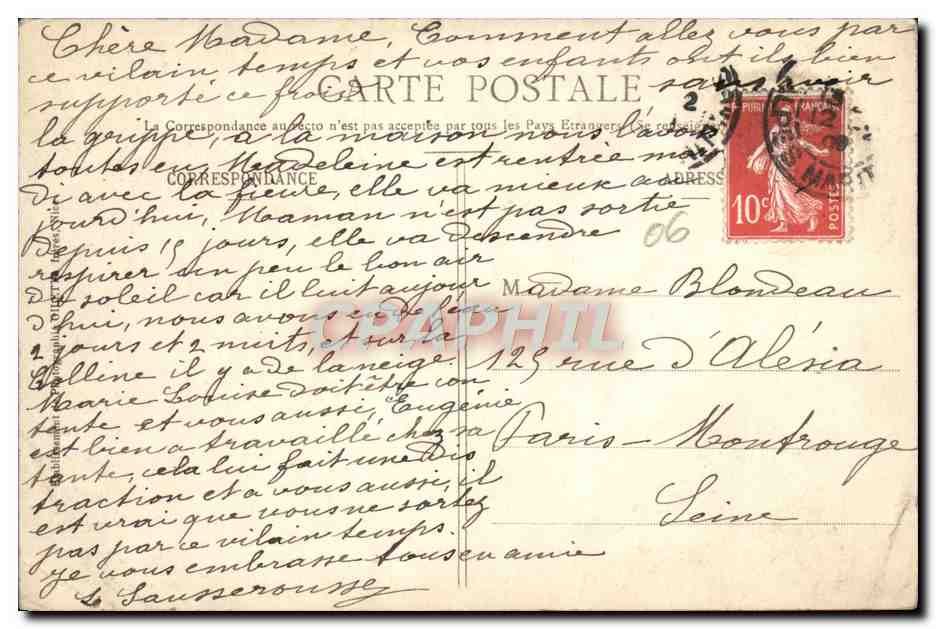 Chère Madame, Comment allez vous par
ce vilain temps et vos enfants ont ils bien
supporté ce froid sans avoir
CARTE POSTALE
la grippe, a la maison nous l'avons
La Correspondance au recto n'est pas acceptée par tous les Pays Etrangers (Se renseigner
toutes eu Magdeleine est rentrée ma
CORRESPONDANCE
ADRESSE
di avec la fièvre, elle va mieux au
jourd'hui, Maman n'est pas sortie
depuis 15 jours, elle va descendre
respirer un peu le bon air
du soleil car il luit aujour
d'hui, nous avons eu de l'eau
2 jours et 2 nuits, et sur la
Colline il y a de la neige.
Marie Louise doit être con
tente et vous aussi, Eugénie
est bien a travaillé chez sa
tante, cela lui fait une dis
traction et a vous aussi, il
est vrai que vous ne sortez
pas par ce vilain temps.
Je vous embrasse tous en amie
L. Sausserousse
Madame Blondeau
125 rue d'Alésia
Paris - Montrouge
Seine
06
10c
POSTES
CPAPHIL